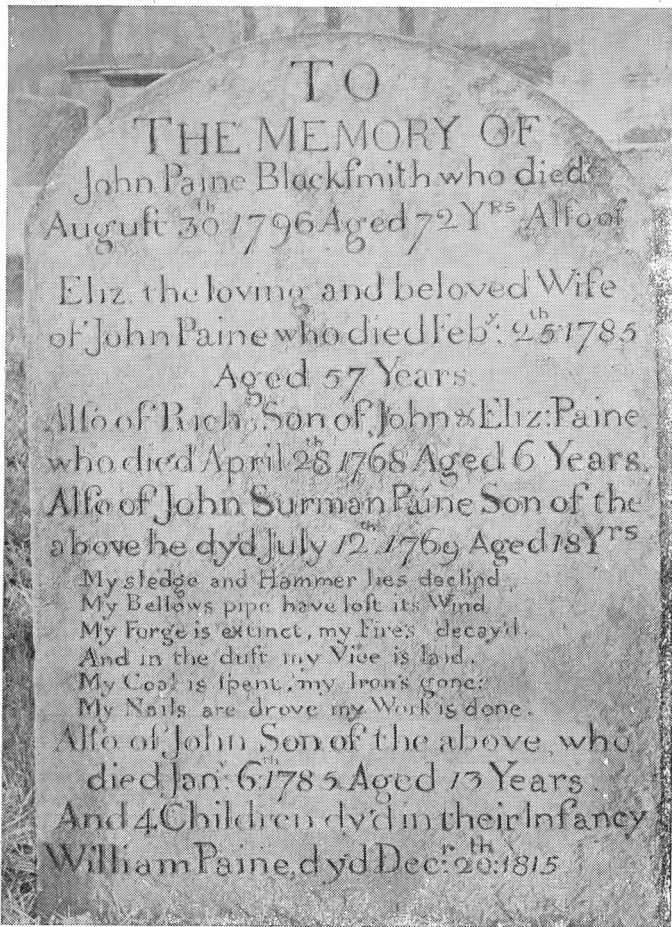 TO
THE MEMORY OF
John Paine Blackſmith who died
Auguſt 30th 1796 Aged 72 Yrs Alſo of
Eliz. the loving and beloved Wife
of John Paine who died Feby: 25th 1785
Aged 57 Years.
Alſo of Rich. Son of John & Eliz: Paine
who died April 28th 1768 Aged 6 Years.
Alſo of John Surman Paine Son of the
above he dy'd July 12th 1769 Aged 18 Yrs
My sledge and Hammer lies declind
My Bellows pipe have loſt its Wind
My Forge is extinct, my Fire's decay'd.
And in the duſt my Vice is laid.
My Coal is ſpent, my Iron's gone:
My Nails are drove my Work is done.
Alſo of John Son of the above who
died Jany: 6th 1785 Aged 13 Years.
And 4 Children dy'd in their Infancy
William Paine, dy'd Decr: 20th: 1815